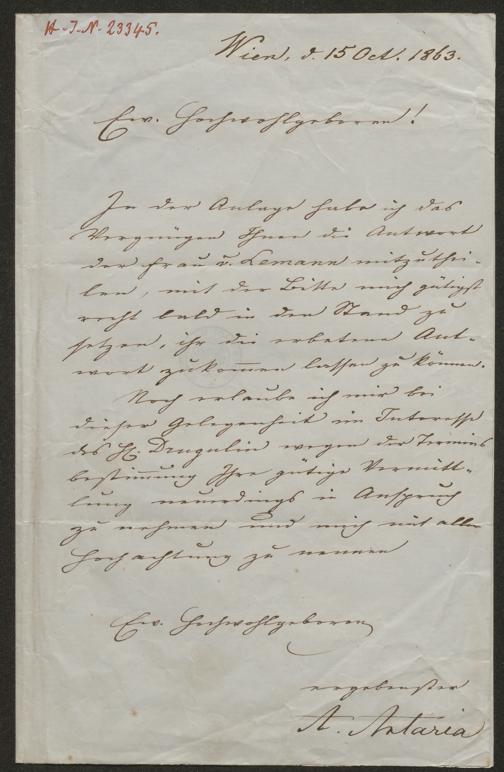 H.I.N. 23345.
Wien, d. 15 Oct. 1863.
Ew. Hochwohlgeboren!
In der Anlage habe ich das
Vergnügen Ihnen die Antwort
der Frau v. Lemann mitzuthei-
len, mit der Bitte mich gütigst
recht bald in den Stand zu
setzen, ihr die erbetene Ant-
wort zukommen lassen zu können.
Noch erlaube ich mir bei
dieser Gelegenheit im Interesse
des H. Drugulin wegen der Termins
bestimmung Ihre gütige Vermitt-
lung neuerdings in Anspruch
zu nehmen und mich mit aller
Hochachtung zu nennen
Ew. Hochwohlgeboren
ergebenster
A. Artaria